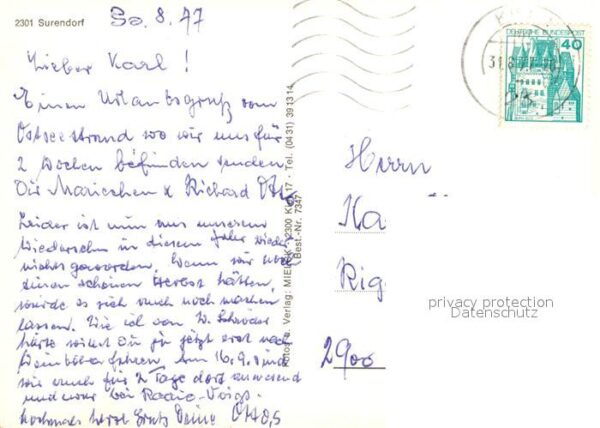 2301 Surendorf
So. 8. 77
Lieber Karl!
Einen Urlaubsgruß vom
Ostseestrand wo wir uns für
2 Wochen befinden senden
Dir Mariechen & Richard
Leider ist nun aus unserem
Wiedersehn in diesem Jahr wieder
nichts geworden. Wenn wir noch
einen schönen Herbst hätten,
würde es sich auch noch machen
lassen. Wie ich von W. Schröder
hörte willst Du ja jetzt erst nach
fahren. Am 16.9. sind
wir auch für 2 Tage dort anwesend
und zwar bei Radio-Voigt.
Nochmals herzl. Grüße Deine
Foto u. Verlag: 2300 Kiel 17 · Tel. (0431) 391314
Best.-Nr. 7347
DEUTSCHE BUNDESPOST
40
Herrn
Ka
Rig
2900
privacy protection
Datenschutz